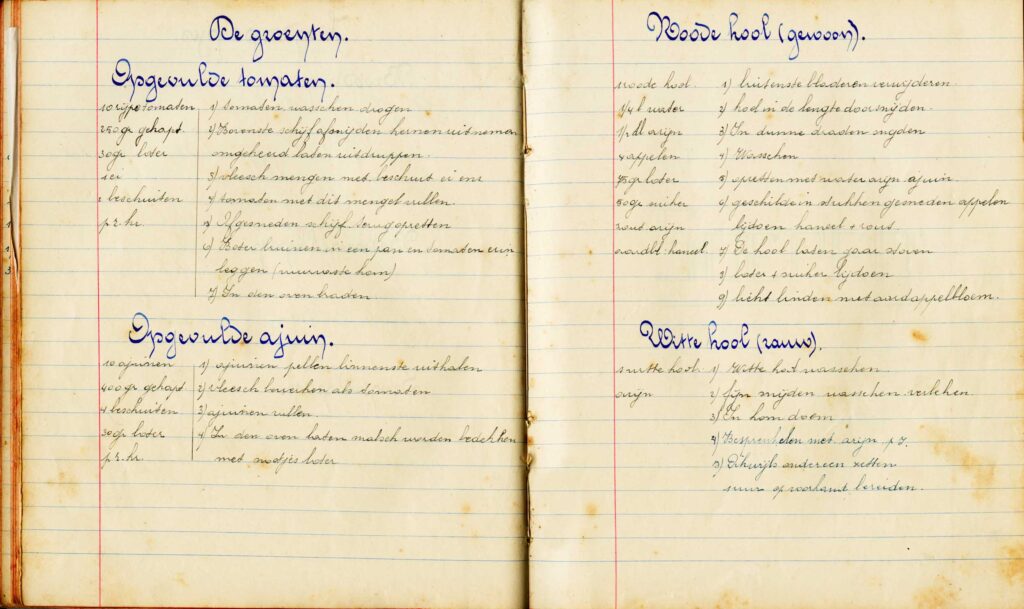 De groenten.
Opgevulde tomaten.
10 rijpe tomaten 1) tomaten wasschen drogen
250 gr gehapt. 2) Bovenste schijf afsnijden kernen uitnemen
30 gr boter omgekeerd laten uitdruppen.
1 ei 3) vleesch mengen met beschuit ei enz
2 beschuiten 4) tomaten met dit mengsel vullen.
p.z.kr. 5) Afgesneden schijf terug opzetten
6) Boter bruinen in een pan en tomaten erin
leggen (vuurvaste kom)
7) In den oven braden.
Opgevulde ajuin.
10 ajuinen 1) ajuinen pellen binnenste uithalen
400 gr gehapt 2) vleesch bewerken als tomaten
4 beschuiten 3) ajuinen vullen.
30 gr boter 4) In den oven laten malsch worden bedekken
p.z.kr. met nootjes boter
Roode kool (gewoon).
1 roode kool 1) buitenste bladeren verwijderen.
1/4 l water 2) kool in de lengte doorsnijden.
1/2 dl azijn 3) In dunne draden snijden
4 appelen 4) Wasschen
75 gr boter 5) opzetten met water azijn ajuin.
50 gr suiker 6) geschilde in stukken gesneden appelen
zout azijn bijdoen kaneel + zout.
aardbl. kaneel. 7) De kool laten gaar stoven
8) boter + suiker bijdoen
9) licht binden met aardappelbloem.
Witte kool (rauw).
1 witte kool 1) Witte kool wasschen
azijn 2) fijn snijden wasschen verlekken.
3) In kom doen
4) Besprenkelen met azijn p z.
5) Dikwijls ondereen zetten
1 uur op voorhand bereiden.